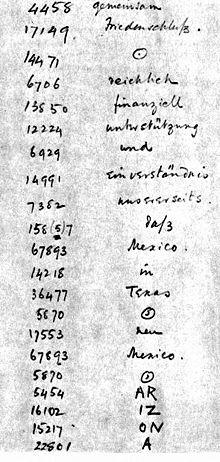 4458 gemeinsam
17149 Friedenschluß.
14471 ⊙
6706 reichlich
13850 finanziell
12224 unterstützung
6929 und
14991 einverständnis
7382 unsererseits.
158(5)7 daß
67893 Mexico.
14218 in
36477 Texas
5870 ⊙
17553 neu
67893 Mexico.
5870 ⊙
5454 AR
16102 IZ
15217 ON
22801 A